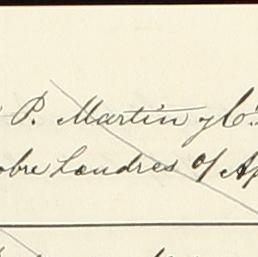 P. Martin y Cª
obre Londres o/ Ap